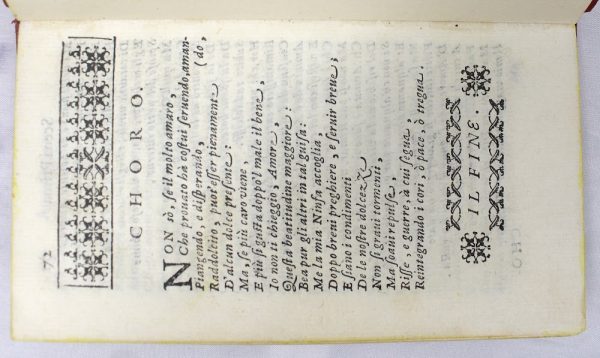 72
CHORO.
NON sò, ſe il molto amaro,
Che prouato hà coſtui ſeruendo, aman-
(do,
Piangendo, e diſperando,
Raddolcito, puot'eſſer pienamente
D'alcun dolce preſente:
Ma, ſe più caro viene,
E più ſi guſta doppo'l male il bene,
Io non ti chieggio, Amore,
Queſta beatitudine maggiore:
Bea pur gli altri in tal guiſa:
Me la mia Ninfa accoglia,
Doppo breui preghiere, e ſeruir breue;
E ſiano i condimenti
De le noſtre dolcezze
Non ſi graui tormenti,
Ma ſoaui repulſe,
Riſſe, e guerre, à cui ſegua,
Reintegrando i cori, ò pace, ò tregua.
IL FINE.